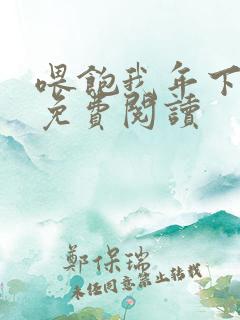 喂飽我 年下
免費閱讀
鄭保瑞
未经同意禁止转载